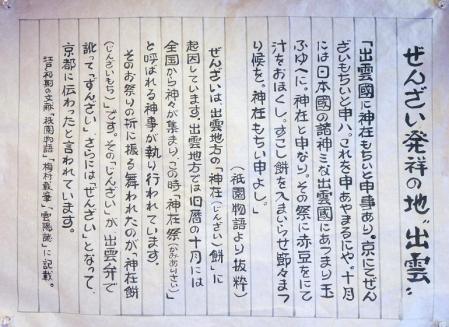 ぜんざい発祥の地〝出雲〟
「出雲國に神在もちいと申事あり。京にてぜん
ざいもちいと申ハ、これを申あやまるにや。十月
には日本國の諸神ミな出雲國にあつまり玉
ふゆへに。神在と申なり。その祭に赤豆をにて
汁をおほくし。すこし餅を入まいらせ節々まつ
り候を。神在もちい申よし。」
(祇園物語より抜粋)
ぜんざいは、出雲地方の「神在(じんざい)餅」に
起因しています。出雲地方では旧暦の十月には
全国から神々が集まり、この時「神在祭(かみありさい)」
と呼ばれる神事が執り行われています。
そのお祭りの折に振る舞われたのが「神在餅
(じんざいもち)」です。その「じんざい」が、出雲弁で
訛って「ずんざい」、さらには「ぜんざい」となって、
京都に伝わったと言われています。
江戸初期の文献、「祇園物語」「梅村載筆」「雲陽誌」に記載。